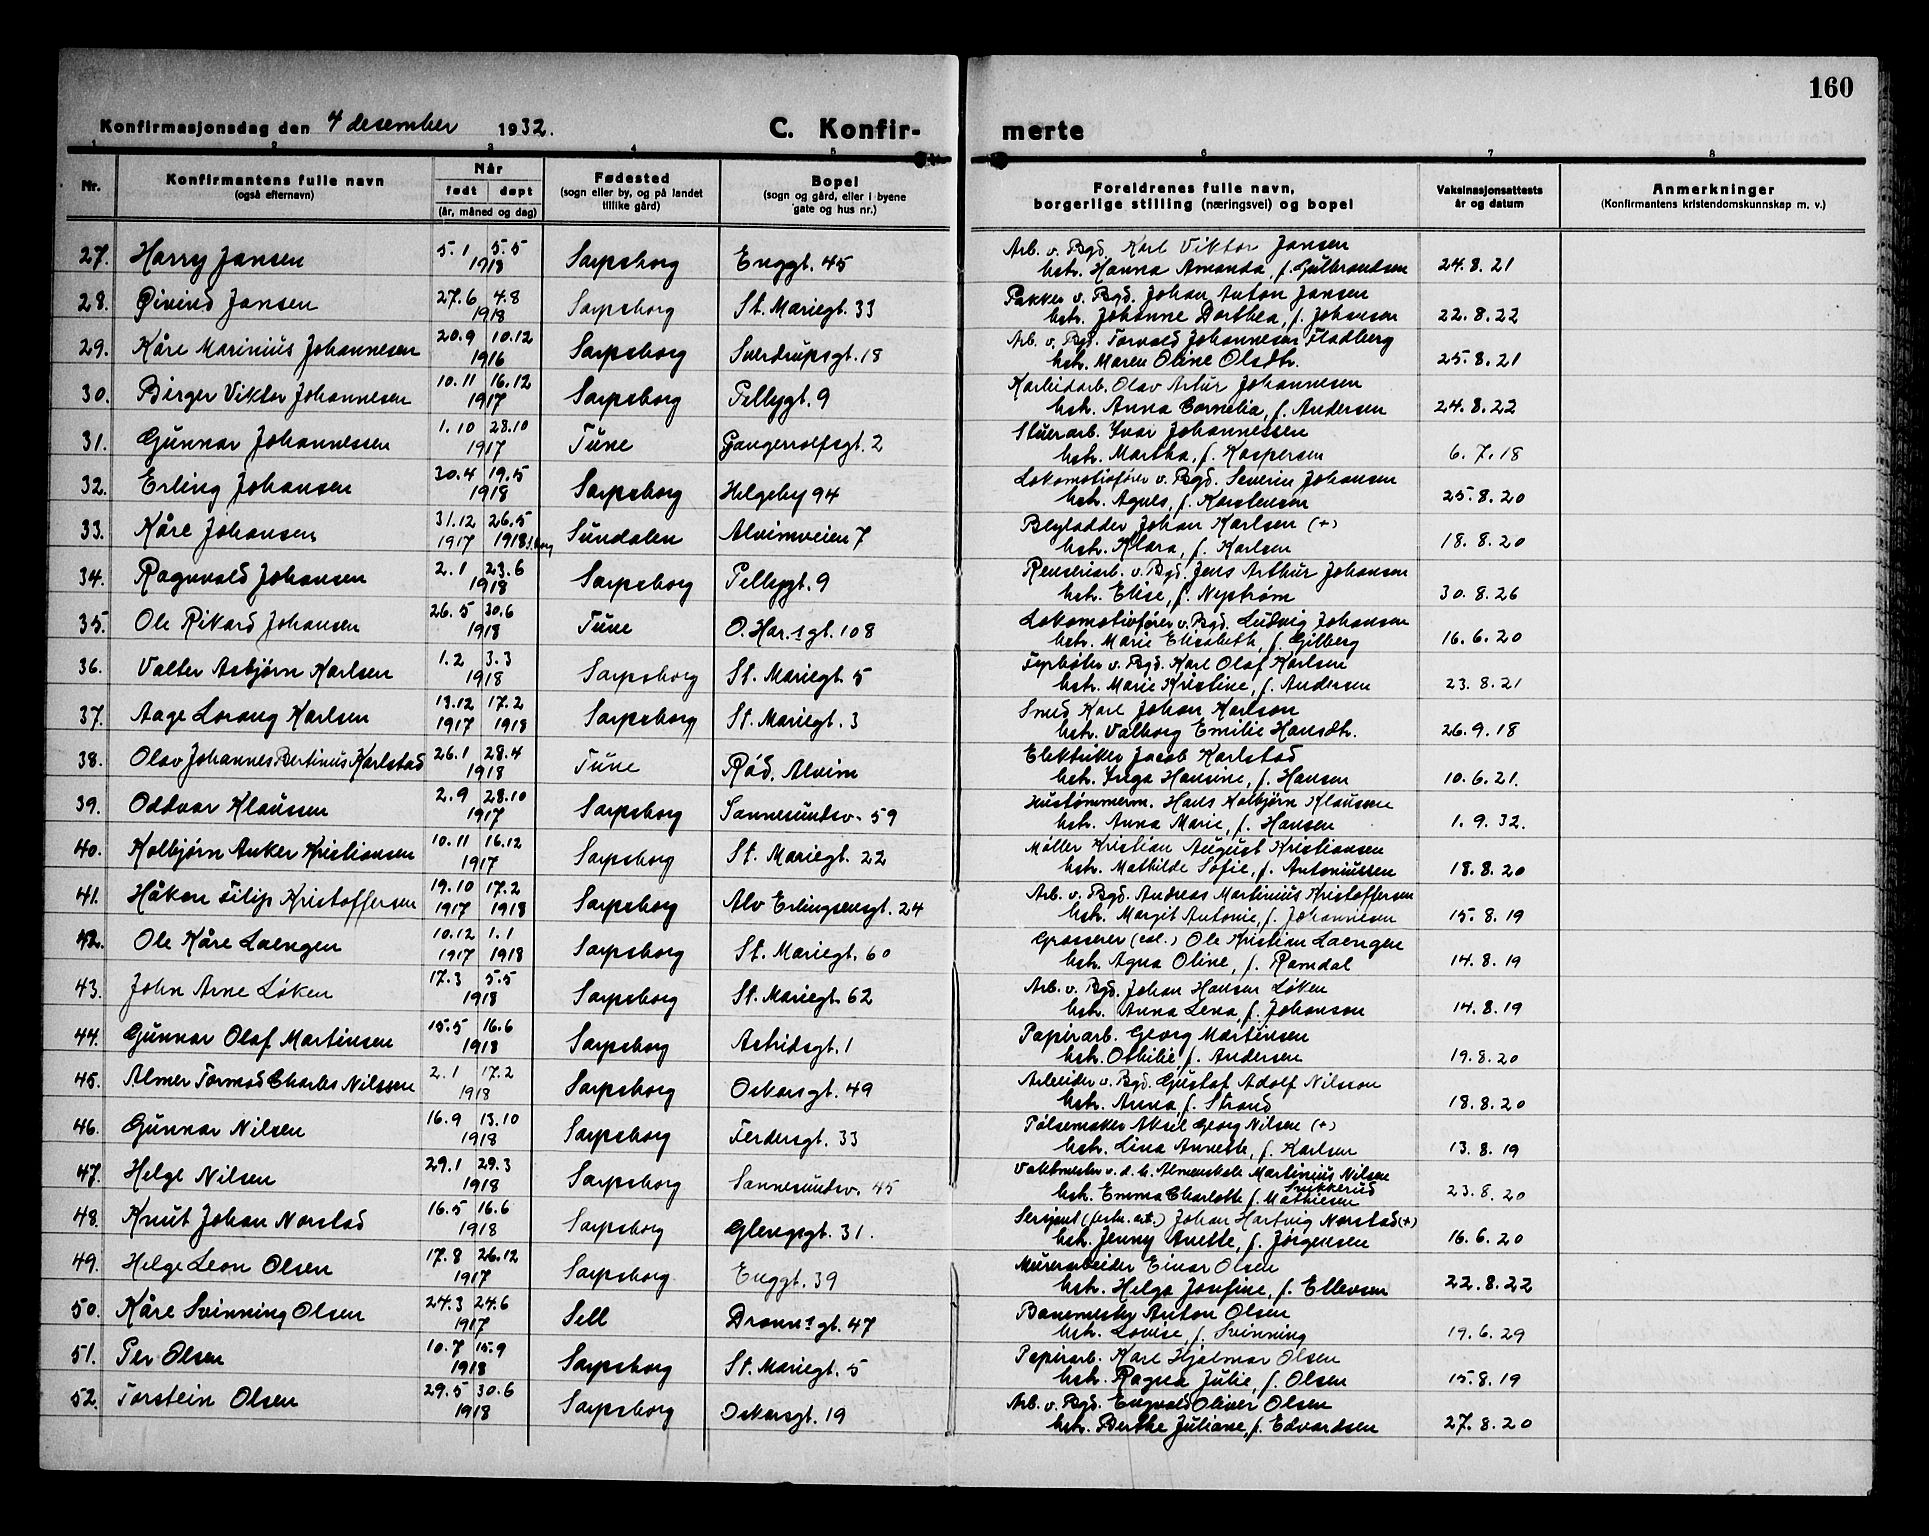 160
Konfirmasjonsdag den 4 desember 1932. C. Konfir- merte
1 2 3 4 5 6 7 8
Nr. Konfirmantens fulle navn (også efternavn) Når født døpt (år, måned og dag) Fødested (sogn eller by, og på landet tillike gård) Bopel (sogn og gård, eller i byene gate og hus nr.) Foreldrenes fulle navn, borgerlige stilling (næringsvei) og bopel Vaksinasjonsattests år og datum Anmerkninger (Konfirmantens kristendomskunnskap m. v.)
27. Harry Jansen 5.1 5.5 1918 Sarpsborg Enggt. 45 Arb. v. Bgd. Karl Viktor Jansen
hstr. Hanna Amanda, f. Gulbrandsen 24.8.21
28. Øivind Jansen 27.6 4.8 1918 Sarpsborg St. Mariegt. 33 Pakker v. Bgd. Johan Anton Jansen
hstr. Johanne Dorthea, f. Johansen 22.8.22
29. Kåre Marinius Johannesen 20.9 10.12 1916 Sarpsborg Sverdrupsgt. 18 Arb. v. Bgd. Torvald Johannesen Fladberg
hstr. Maren Oline Olsdtr. 25.8.21
30. Birger Viktor Johannesen 10.11 16.12 1917 Sarpsborg Pellygt. 9 Karbidarb. Olav Artur Johannesen
hstr. Anna Cornelia, f. Andersen 24.8.22
31. Gunnar Johannessen 1.10 28.10 1917 Tune Gangerrolfsgt. 2 Stuerarb. Ivar Johannessen
hstr. Martha, f. Kaspersen 6.7.18
32. Erling Johansen 30.4 19.5 1918 Sarpsborg Helgeby 94 Lokomotivfører v. Bgd. Severin Johansen
hstr. Agnes, f. Karstensen 25.8.20
33. Kåre Johansen 31.12 1917 26.5 1918 S.borg Sundalen Alvimveien 7 Blygladder Johan Karlsen (+)
hstr. Klara, f. Karlsen 18.8.20
34. Ragnvald Johansen 2.1 23.6 1918 Sarpsborg Pellygt. 9 Renseriarb. v. Bgd. Jens Arthur Johansen
hstr. Elise, f. Nystrøm 30.8.26
35. Ole Rikard Johansen 26.5 30.6 1918 Tune O. Har.s gt. 108 Lokomotivfører v. Bgd. Ludvig Johansen
hstr. Marie Elisabeth, f. Gilberg 16.6.20
36. Valter Asbjørn Karlsen 1.2 3.3 1918 Sarpsborg St. Mariegt. 5 Fyrbøter v. Bgd. Karl Olaf Karlsen
hstr. Marie Kristine, f. Andersen 23.8.21
37. Aage Lorang Karlsen 13.12 1917 17.2 1918 Sarpsborg St. Mariegt. 3 Smed Karl Johan Karlson
hstr. Valborg Emilie Hansdtr. 26.9.18
38. Olav Johannes Bertinius Karlstad 26.1 28.4 1918 Tune Rød. Alvim Elektriker Jacob Karlstad
hstr. Inga Hansine, f. Hansen 10.6.21.
39. Oddvar Klaussen 2.9 28.10 1917 Sarpsborg Sannesundsv. 59 Hustømmerm. Hans Kolbjørn Klausen
hstr. Anna Marie, f. Hansen 1.9.32.
40. Kolbjørn Anker Kristiansen 10.11 16.12 1917 Sarpsborg St. Mariegt. 22 Møller Kristian August Kristiansen
hstr. Mathilde Sofie, f. Antoniussen 18.8.20
41. Håkon Filip Kristoffersen 19.10 1917 17.2 1918 Sarpsborg Alv Erlingsensgt. 24 Arb. v. Bgd. Andreas Martinius Kristoffersen
hstr. Margit Antonie, f. Johannesen 15.8.19
42. Ole Kåre Laengen 10.12 1917 1.1 1918 Sarpsborg St. Mariegt. 60 Grosserer (col.) Ole Kristian Laengen
hstr. Agna Oline, f. Ramdal 14.8.19
43. John Arne Løken 17.3 5.5 1918 Sarpsborg St. Mariegt. 62 Arb. v. Bgd. Johan Hansen Løken
hstr. Anna Lena, f. Johanson 14.8.19
44. Gunnar Olaf Martinsen 15.5 16.6 1918 Sarpsborg Astridsgt. 1 Papirarb. Georg Martinsen
hstr. Othilie, f. Andersen 19.8.20
45. Almer Tormod Charles Nilssen 2.1 17.2 1918 Sarpsborg Oskarsgt. 49 Arbeider v. Bgd. Gustaf Adolf Nilsson
hstr. Anna, f. Strand 18.8.20
46. Gunnar Nilsen 16.9 13.10 1918 Sarpsborg Ferdersgt. 33 Pølsemaker Aksel Georg Nilsen (+)
hstr. Lina Annette, f. Karlsen 13.8.19
47. Helge Nilsen 29.1 29.3 1918 Sarpsborg Sannesundsv. 45 Vaktmester v. d. h. Almenskole Martinius Nilsen Svikkerud
hstr. Emma Charlotte f. Mathiesen 23.8.20
48. Knut Johan Norstad 16.5 16.6 1918 Sarpsborg Glengsgt. 31. Sersjant (festn. art.) Johan Hartvig Norstad (+)
hstr. Jenny Anette, f. Jørgensen 16.6.20
49. Helge Leon Olsen 17.8 26.12 1917 Sarpsborg Enggt. 39 Murerarbeider Einar Olsen
hstr. Helga Josefine, f. Ellevsen 22.8.22
50. Kåre Svinning Olsen 24.3 24.6 1917 Sell Dronn.s gt. 47 Banemester Anton Olsen
hstr. Lovise, f. Svinning 19.6.29
51. Per Olsen 10.7 15.9 1918 Sarpsborg St. Mariegt. 5 Papirarb. Karl Hjalmar Olsen
hstr. Ragna Julie, f. Olsen 15.8.19
52. Torstein Olsen 29.5 30.6 1918 Sarpsborg Oskarsgt. 19 Arb. v. Bgd. Engvald Oliver Olsen
hstr. Berthe Juliane, f. Edvardsen 27.8.20